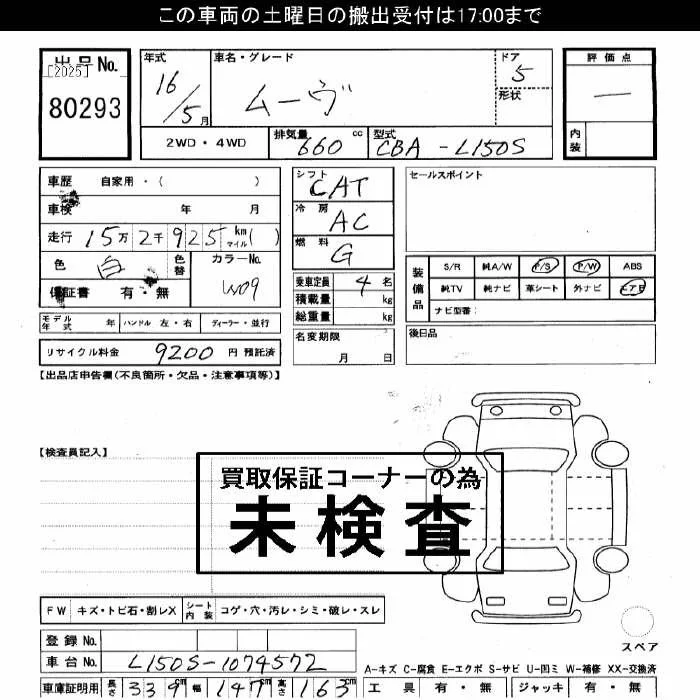 この車両の土曜日の搬出受付は17:00まで
出品No. 年式 車名・グレード ドア 評価点
[2025] 16/5月 ムーヴ 5 —
80293 形状
2WD・4WD 排気量 660 cc 型式 CBA-L150S 内装
車歴 自家用・( ) シフト CAT セールスポイント
車検 年 月 冷房 AC
走行 15万2千925 km マイル( ) 燃料 G
色 白 色替 カラーNo. W09
装備品 S/R 純A/W P/S P/W ABS
保証書 有・無 乗車定員 4名 純TV 純ナビ 革シート 外ナビ エアB
積載量 kg ナビ型番:
モデル年式 年 ハンドル 左・右 ディーラー・並行 総重量 kg
リサイクル料金 9200 円 預託済 名変期限 月 日 後日品
【出品店申告欄(不良箇所・欠品・注意事項等)】
【検査員記入】
買取保証コーナーの為
未検査
FW キズ・トビ石・割レX シート内装 コゲ・穴・汚レ・シミ・破レ・スレ
スペア
登録No.
車台No. L150S-1074572
A-キズ C-腐食 E-エクボ S-サビ U-凹ミ W-補修 XX-交換済
車庫証明用 長さ 339cm 幅 147cm 高さ 163cm 工具 有・無 ジャッキ 有・無